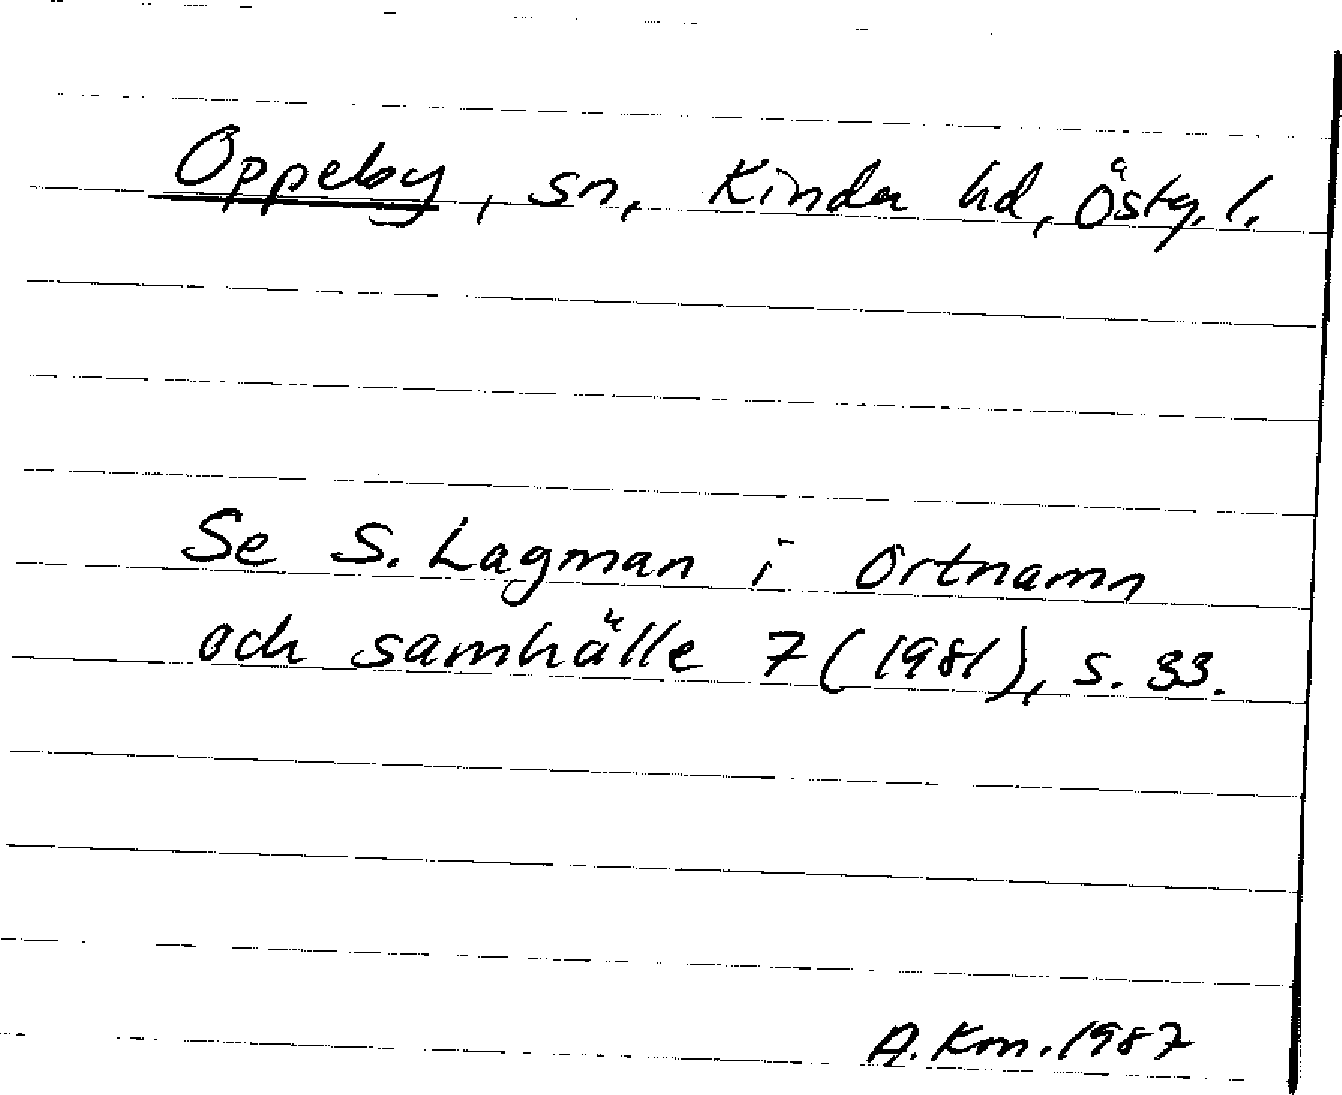 Oppeby, sn, Kinda hd, Östg. l.
Se S. Lagman i Ortnamn
och samhälle 7 (1981), s. 33.
A. Km. 1987